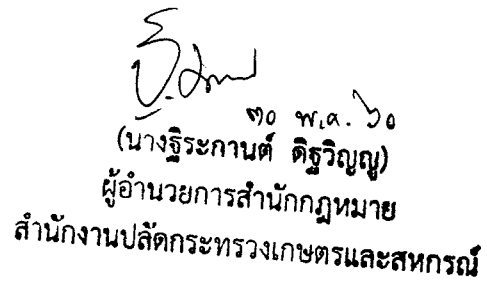 ๓๐ พ.ค. ๖๐
(นางฐิระกานต์ ดิฐวิญญู)
ผู้อำนวยการสำนักกฎหมาย
สำนักงานปลัดกระทรวงเกษตรและสหกรณ์